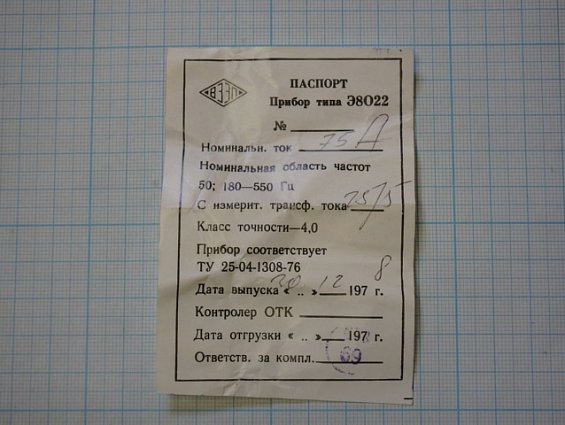 ВЗЭП
ПАСПОРТ
Прибор типа Э8022
№
Номинальн. ток 75 А
Номинальная область частот
50; 180—550 Гц
С измерит. трансф. тока 75/5
Класс точности—4,0
Прибор соответствует
ТУ 25-04-1308-76
Дата выпуска « 20 » 12 1978 г.
Контролер ОТК
Дата отгрузки « .. » 197 г.
69
Ответств. за компл.